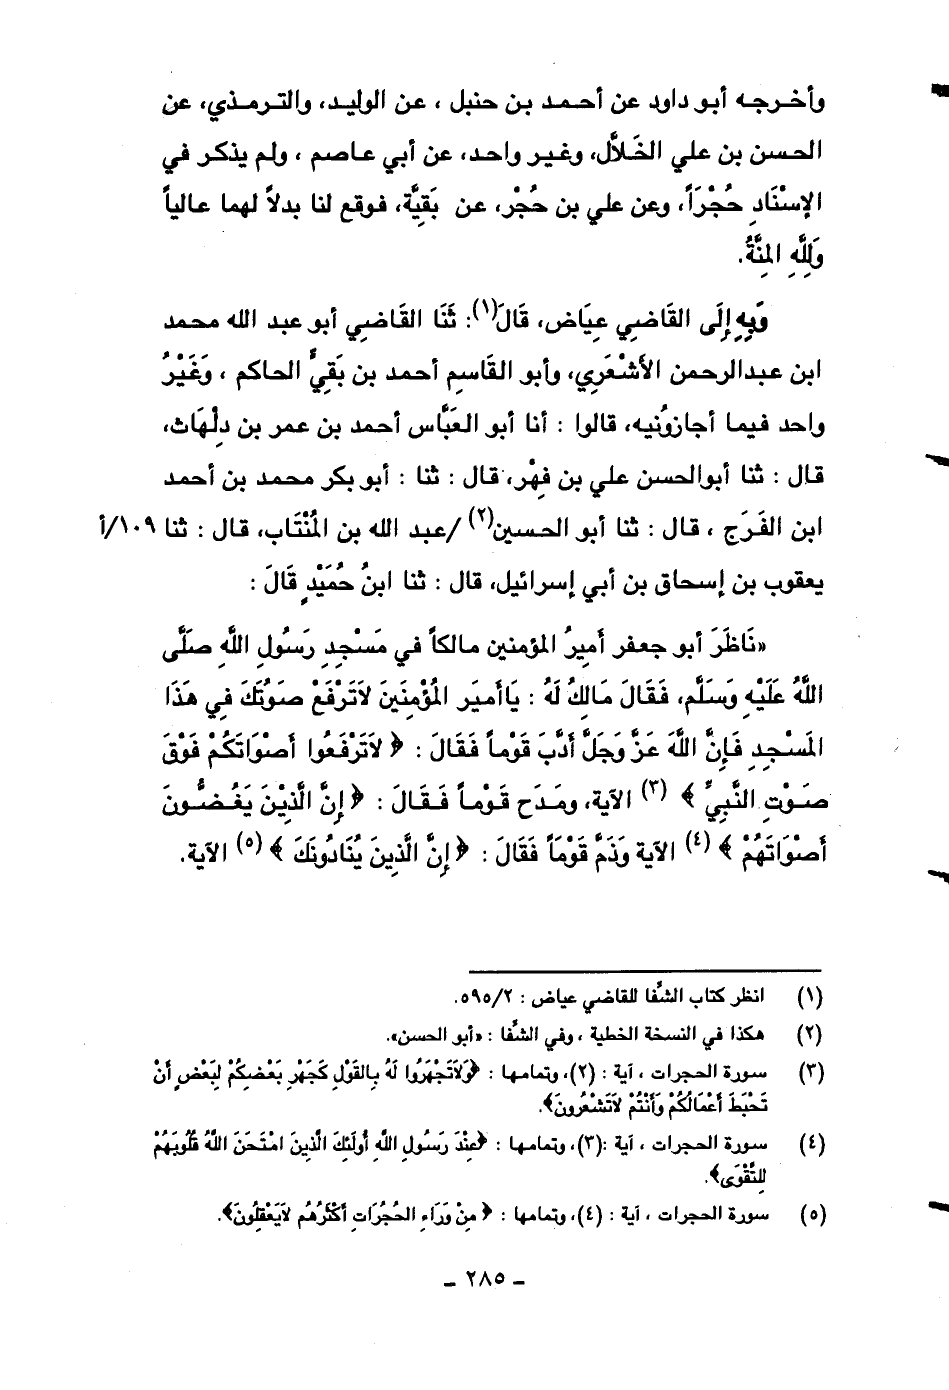 وأخرجه أبو داود عن أحمد بن حنبل ، عن الوليد، والترمذي، عن
الحسن بن علي الخَلاَّل، وغير واحد، عن أبي عاصم ، ولم يذكر في
الإسْنَادِ حُجْرَاً، وعن علي بن حُجْر، عن بَقِيَّة، فوقع لنا بدلاً لهما عالياً
وَلِلَّهِ المِنَّةُ.
وَبِهِ إِلَى القَاضِي عِيَاض، قَالَ(١): ثَنَا القَاضِي أبو عبد الله محمد
ابن عبدالرحمن الأشْعَرِي، وأبو القَاسِم أحمد بن بَقِيٍّ الحاكم ، وَغَيْرُ
واحد فيما أجازوُنيه، قالوا : أنا أبو العَبَّاس أحمد بن عمر بن دِلْهَاث،
قال : ثنا أبوالحسن علي بن فِهْر، قال : ثنا : أبو بكر محمد بن أحمد
ابن الفَرَج ، قال : ثنا أبو الحسين(٢) /عبد الله بن المُنْتَاب، قال : ثنا ١٠٩/أ
يعقوب بن إسحاق بن أبي إسرائيل، قال : ثنا ابنُ حُمَيْدٍ قَالَ :
«نَاظَرَ أبو جعفر أَمِيرُ المؤمنين مالكاً في مَسْجِدِ رَسُولِ اللَّهِ صَلَّى
اللَّهُ عَلَيْهِ وَسَلَّم، فَقَالَ مَالِكُ لَهُ : يَاأمِيَر المُؤْمِنَينَ لاَتَرْفَعْ صَوتَكَ فِي هَذَا
المَسْجِدِ فَإِنَّ اللَّهَ عَزَّ وَجَلَّ أَدَّبَ قَوْماً فَقَالَ : ﴿ لاَتَرْفَعُوا أَصْوَاتَكُمْ فَوْقَ
صَوْتِ النَّبِيِّ ﴾ (٣) الآية، ومَدَح قَوْماً فَقَالَ : ﴿ إِنَّ الَّذِيْنَ يَغُضُّونَ
أَصْوَاتَهُمْ ﴾ (٤) الآية وَذَمَّ قَوْمَاً فَقَالَ : ﴿ إِنَّ الَّذِينَ يُنَادُونَكَ ﴾ (٥) الآية.
(١) انظر كتاب الشفا للقاضي عياض : ٥٩٥/٢.
(٢) هكذا في النسخة الخطية ، وفي الشفا : «أبو الحسن».
(٣) سورة الحجرات ، آية : (٢)، وتمامها : ﴿وَلاَتَجْهَرُوا لَهُ بِالقَوْلِ كَجَهْرِ بَعْضِكُمْ لِبَعْضٍ أَنْ
تَحْبَطَ أَعْمَالُكُمْ وَأَنْتُمْ لاَتَشْعُرُونَ﴾.
(٤) سورة الحجرات ، آية :(٣)، وتمامها : ﴿عِنْدَ رَسُولِ اللَّهِ أُولَئِكَ الَّذِينَ امْتَحَنَ اللَّهُ قُلُوبَهُمْ
لِلتَّقْوَى﴾.
(٥) سورة الحجرات ، آية : (٤)، وتمامها : ﴿ مِنْ وَرَاءِ الحُجُرَاتِ أَكْثَرُهُم لاَيَعْقِلُونَ﴾.
ـ ٢٨٥ ـ